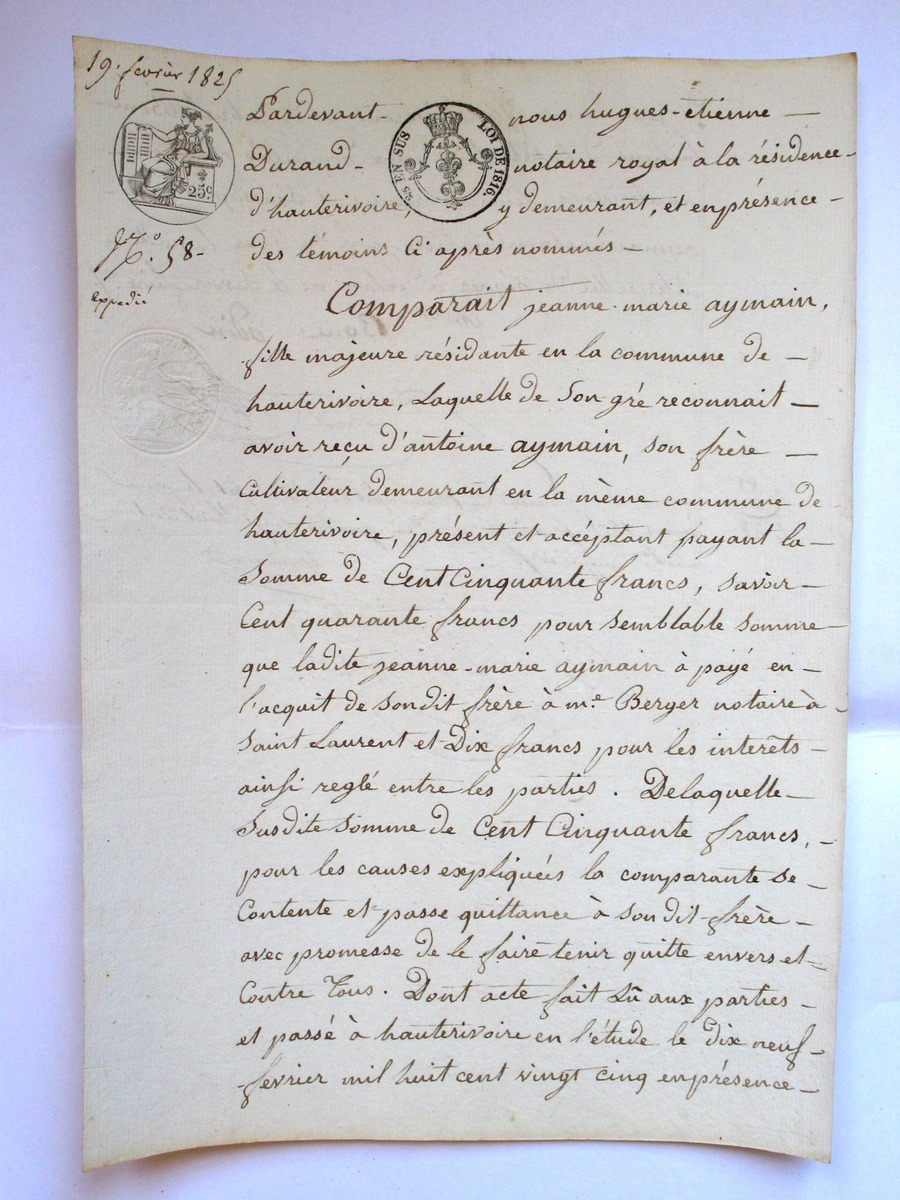 19. fevrier 1825
25c.
25 EN SUS LOI DE 1816.
N.º 58-
expedié
Pardevant- nous hugues-etienne —
Durand- notaire royal à la résidence-
d'hauterivoire, y demeurant, et en présence-
des témoins Ci après nommés —
Comparait jeanne-marie aymain,
fille majeure résidante en la commune de —
hauterivoire, Laquelle de Son gré reconnait —
avoir reçu d'antoine aymain, son frère —
Cultivateur demeurant en la même commune de
hauterivoire, présent et accéptant payant la —
Somme de Cent Cinquante francs, savoir —
Cent quarante francs pour semblable somme —
que ladite jeanne-marie aymain à payé en —
l'acquit de sondit frère à m.e Berger notaire à -
Saint Laurent et Dix francs pour les interets -
ainsi reglé entre les parties. Delaquelle —
Susdite Somme de Cent Cinquante francs, -
pour les causes expliquées la comparante se —
Contente et passe quittance à Son dit frère —
avec promesse de le faire tenir quitte envers et =
Contre Tous. Dont acte fait Lû aux parties -
et passé à hauterivoire en l'étude le dix neuf -
fevrier mil huit cent vingt cinq en présence —